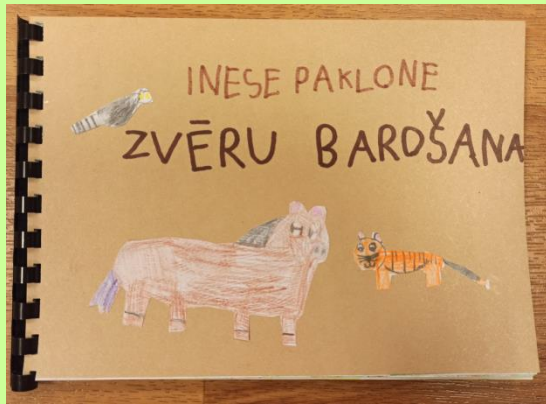 INESE PAKLONE
ZVĒRU BAROŠANA